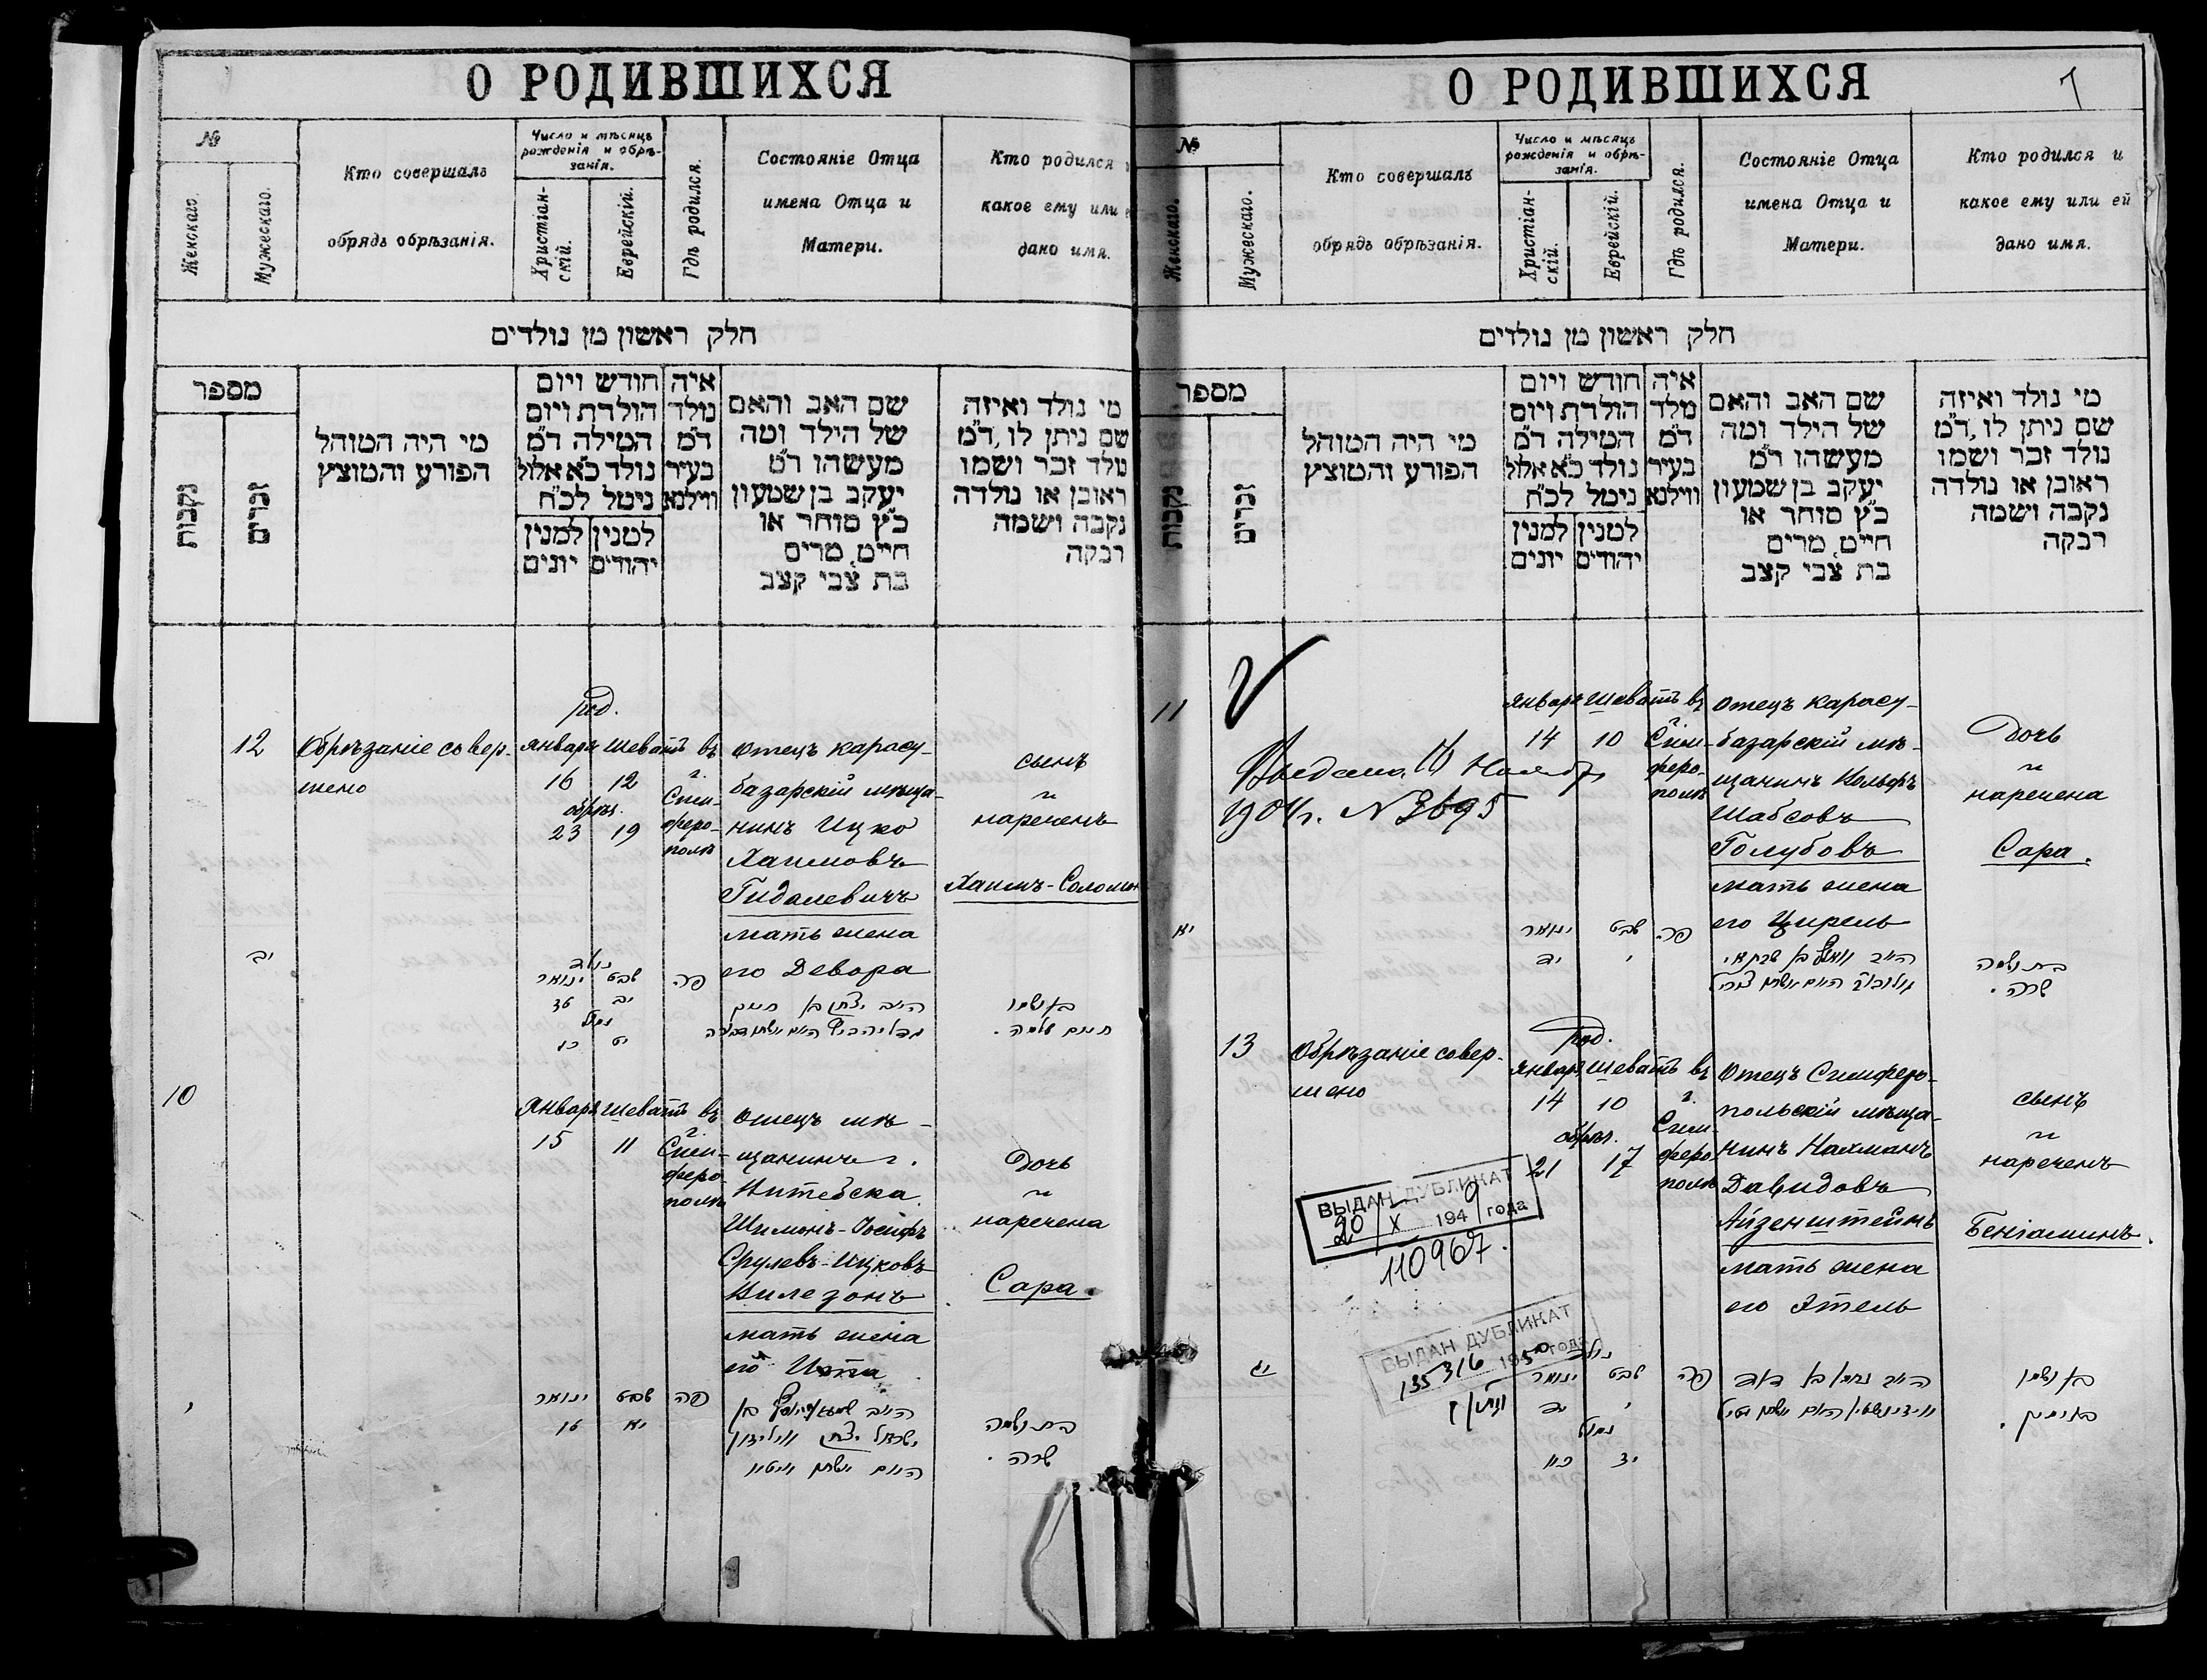 О РОДИВШИХСЯ
№
Женскаго.
Мужескаго.
Кто совершалъ
обрядъ обрѣзанія.
Число и мѣсяцъ
рожденія и обрѣ-
занія.
Христіан-
скій.
Еврейскій.
Гдѣ родился.
Состояніе Отца
имена Отца и
Матери.
Кто родился
какое ему или
дано имя.
חלק ראשון מן נולדים
מספר
נקבות
זכרים
מי היה המוהל
הפורע והמוצץ
חודש ויום
הולדת ויום
המילה ד״מ
נולד כ״א אלול
נימל לכ״ח
למנין למנין
יהודים יונים
איה
נולד
ד״מ
בעיר
ווילנא
שם האב והאם
של הילד ומה
מעשהו ד״מ
יעקב בן שמעון
כ״ץ סוחר או
חייט, מרים
בת צבי קצב
מי נולד ואיזה
שם ניתן לו, ד״מ
נולד זכר ושמו
ראובן או נולדה
נקבה ושמה
רבקה
12
Обрѣзаніе совер-
шено
род.
Январь Шеватъ
16 12
обрѣз.
23 19
въ
г.
Сим-
феро-
полѣ
отецъ карасу-
базарскій мѣща-
нинъ Ицко
Хаимовъ
Гидалевичъ
мать жена
его Девора
сынъ
и
нареченъ
Хаимъ-Соломон
יב
נולד
ינואר שבט
יב
נמול
יט
פה
האב יצחק בן חיים
בן ושמו
חיים שלמה.
10
Январь Шеватъ
15 11
въ
г.
Сим-
феро-
полѣ
отецъ мѣ-
щанинъ г.
Витебска
Шимонъ-Іосифъ
Срулевъ-Ицковъ
Вилезонъ
мать жена
его Ита
Дочь
и
наречена
Сара.
י
ינואר שבט
יא
פה
האב שמעון יוסף בן
ישראל יצחק
בת ושמה
שרה.
О РОДИВШИХСЯ
7
№
Женскаго.
Мужескаго.
Кто совершалъ
обрядъ обрѣзанія.
Число и мѣсяцъ
рожденія и обрѣ-
занія.
Христіан-
скій.
Еврейскій.
Гдѣ родился.
Состояніе Отца
имена Отца и
Матери.
Кто родился и
какое ему или ей
дано имя.
חלק ראשון מן נולדים
מספר
נקבות
זכרים
מי היה המוהל
הפורע והמוצץ
חודש ויום
הולדת ויום
המילה ד״מ
נולד כ״א אלול
נימל לכ״ח
למנין למנין
יהודים יונים
איה
נולד
ד״מ
בעיר
ווילנא
שם האב והאם
של הילד ומה
מעשהו ד״מ
יעקב בן שמעון
כ״ץ סוחר או
חייט, מרים
בת צבי קצב
מי נולד ואיזה
שם ניתן לו, ד״מ
נולד זכר ושמו
ראובן או נולדה
נקבה ושמה
רבקה
11
Январь Шеватъ
14 10
въ
г.
Сим-
феро-
полѣ
отецъ карасу-
базарскій мѣ-
щанинъ Вольфъ
Шабсовъ
Голубовъ
мать жена
его Цирель
Дочь
и
наречена
Сара.
יא
ינואר שבט
יד י
פה
בת ושמה
שרה.
13
Обрѣзаніе совер-
шено
род.
Январь Шеватъ
14 10
обрѣз.
21 17
въ
г.
Сим-
феро-
полѣ
Отецъ Симферо-
польскій мѣща-
нинъ Нахманъ
Давидовъ
Айзенштейнъ
мать жена
его Этель
сынъ
и
нареченъ
Бенiаминъ.
ВЫДАН ДУБЛИКАТ
20/X 1949 года
110967.
ВЫДАН ДУБЛИКАТ
1950 года
135316
יג
נולד
ינואר שבט
יד י
נמול
יז
פה
האב נחמן בן דוד
בן ושמו
בנימין.